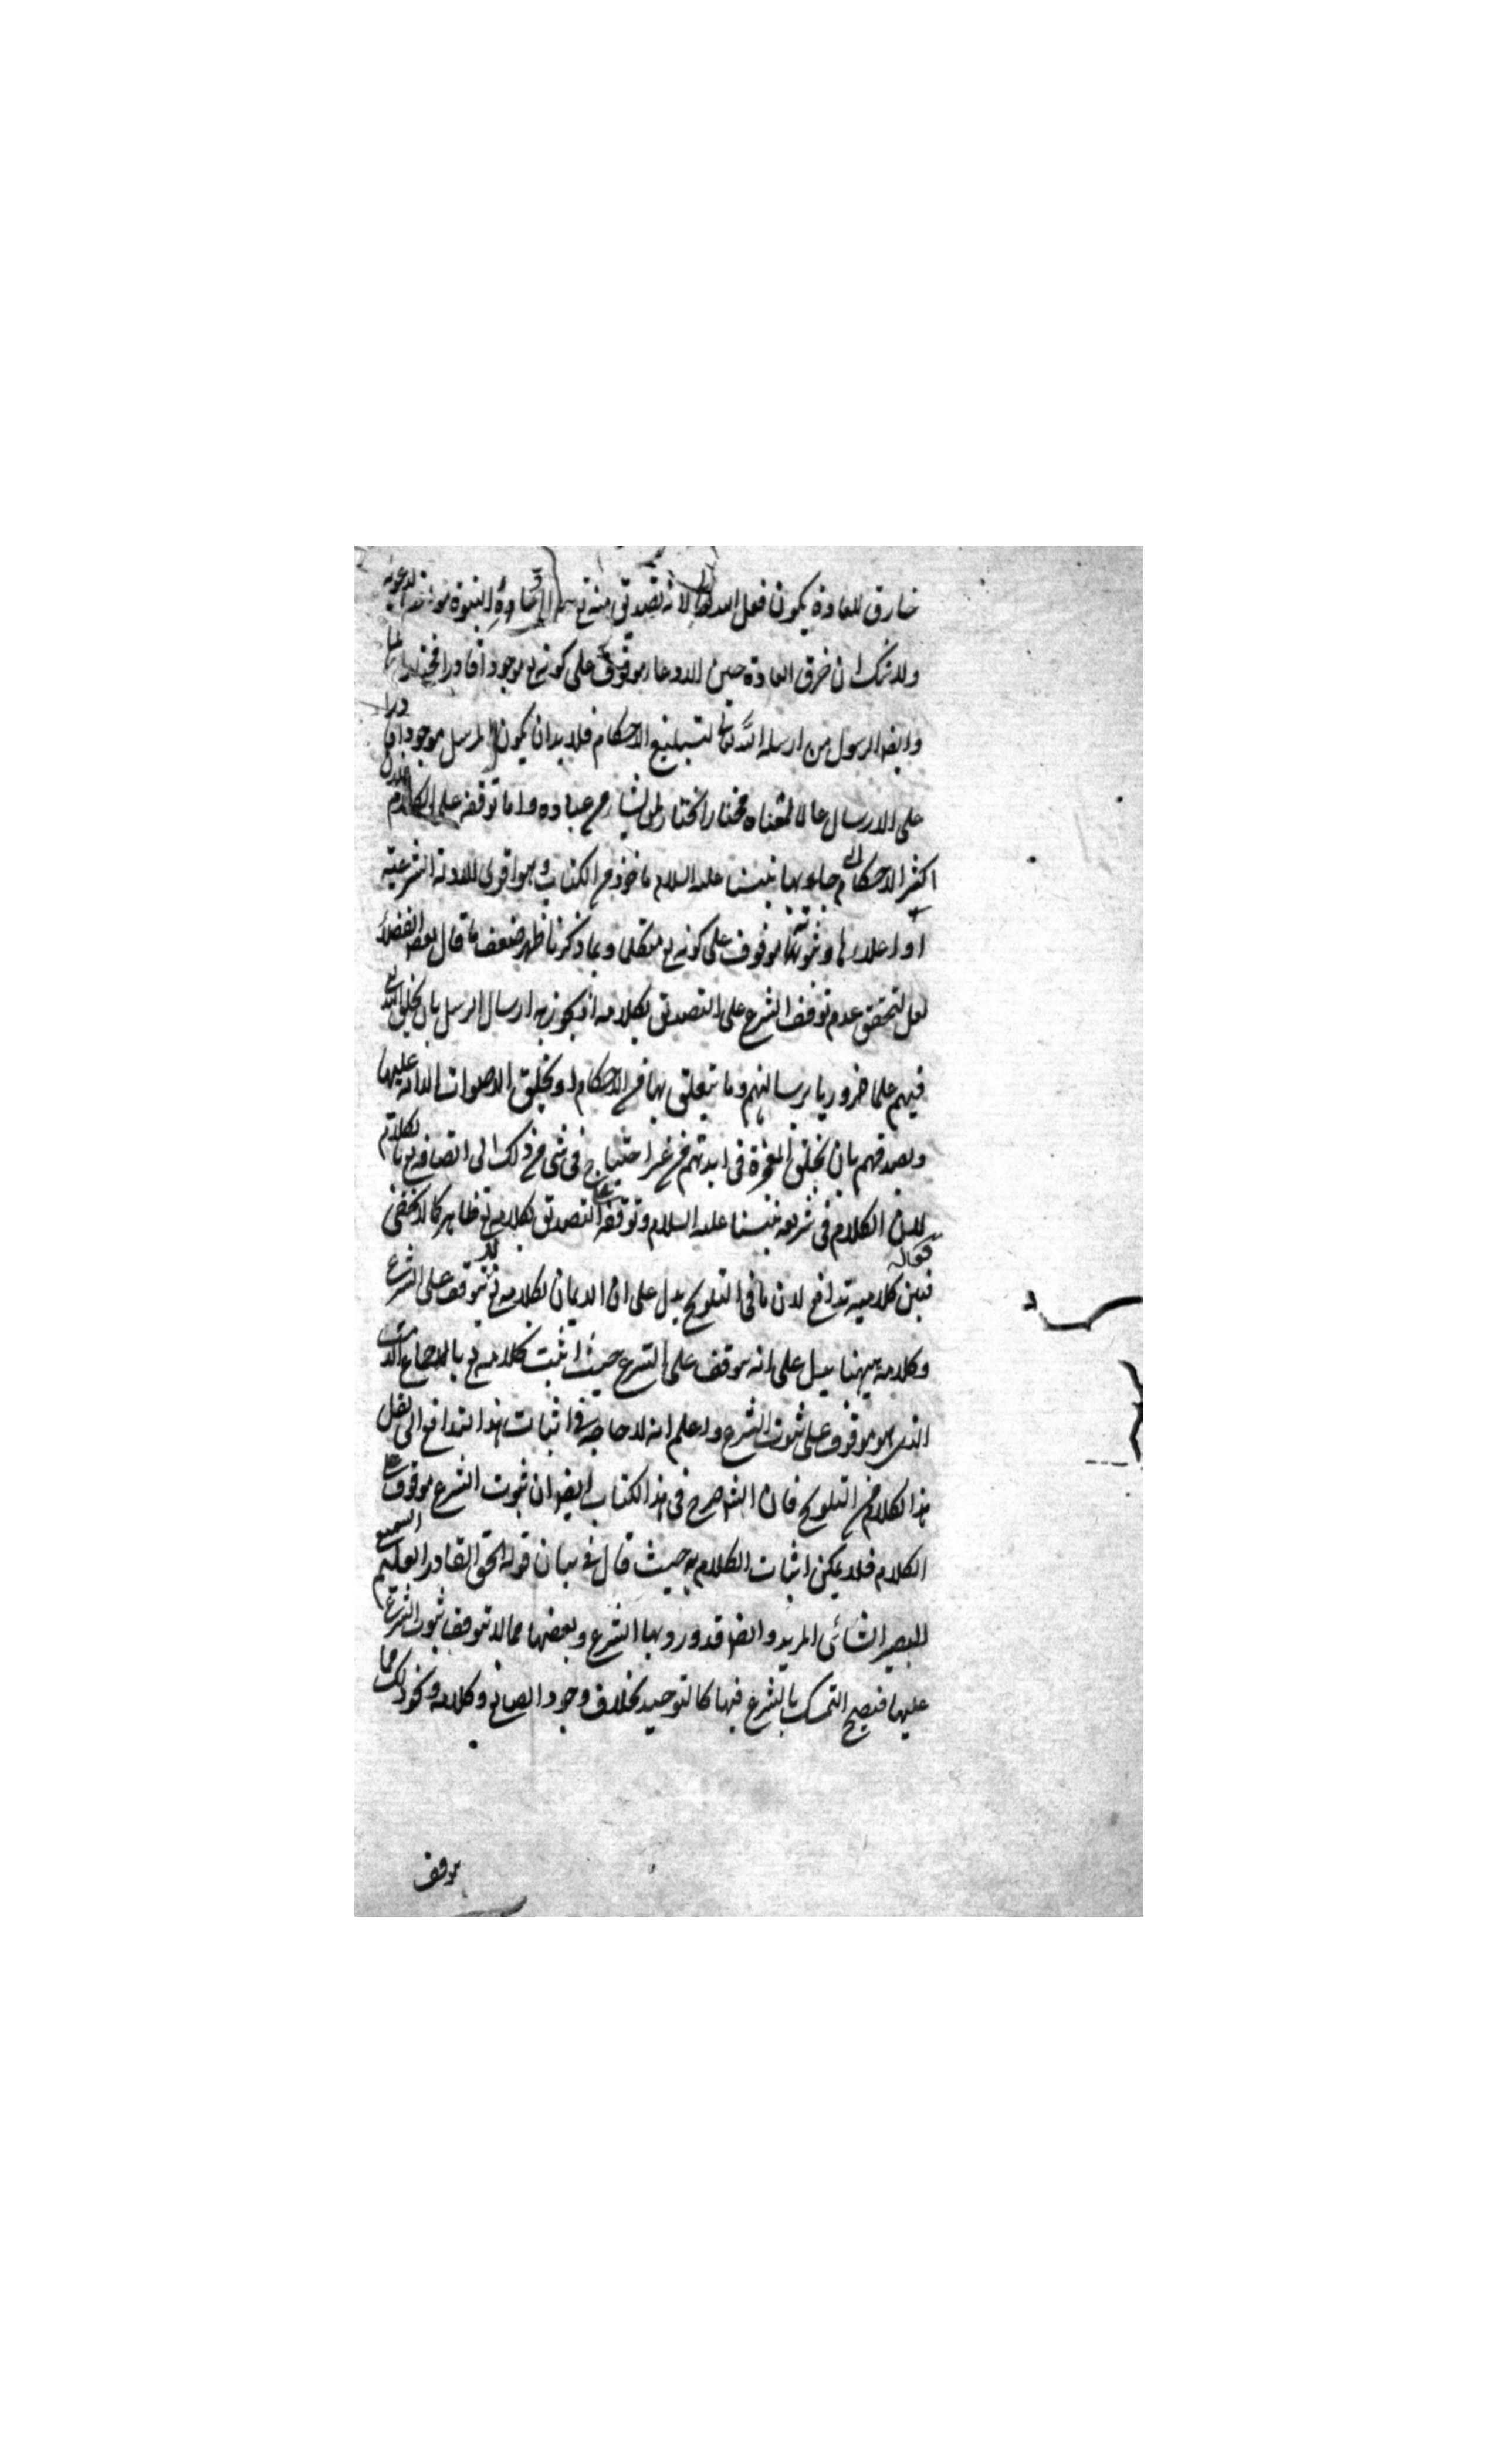 خارق للعادة يكون فعل الله تعالى لانه تصديق منه تع النبوة
ولا شك ان خرق العادة حين الادعاء موقوف على كونه تع موجودا قادرا مختارا
وايضا الرسول من ارسله الله تعالى لتبليغ الاحكام فلا بد ان يكون المرسل موجودا قادرا
على الارسال عالما بمعناه مختارا يختار لمن يشاء من عباده واما توقفه على الكلام فلان
اكثر الاحكام التي جاء بها نبينا عليه السلام ماخوذ من الكتاب وهو اقوى الادلة الشرعية
او اعلاها وثبوتها موقوف على كونه تع متكلما وبما ذكرنا ظهر ضعف ما قال بعض الفضلاء
لعل لتحقق عدم توقف الشرع على التصديق بكلامه اذ يجوز به ارسال الرسل بان يخلق الله تع
فيهم علما ضروريا برسالتهم وما يتعلق بها من الاحكام او يخلق الاصوات الدالة عليها
ويصدقهم بان يخلق المعجزة في ايديهم من غير احتياج في شئ من ذلك الى اتصافه تع بالكلام
لان الكلام في شريعة نبينا عليه السلام وتوقفه على التصديق بكلامه تع ظاهر كما لا يخفى
قوله
فبين كلاميه تدافع لان ما في التلويح يدل على ان الايمان بكلامه تع لا يتوقف على الشرع
وكلامه ههنا يدل على انه موقف على الشرع حيث اثبت كلامه تع بالاجماع
الذي هو موقوف على ثبوت الشرع واعلم انه لا حاجة في اثبات هذا التدافع الى نقل
هذا الكلام من التلويح فان الش صرح في هذا الكتاب ايضا ان ثبوت الشرع موقوف على
الكلام فلا يمكن اثبات الكلام به حيث قال في بيان قوله الحق القادر العليم السميع
البصير الشائي المريد وايضا قد ورد بها الشرع وبعضها مما لا تتوقف ثبوت الشرع
عليها فيصح التمسك بالشرع فيها كالتوحيد بخلاف وجود الصانع وكلامه ونحو ذلك مما
يتوقف